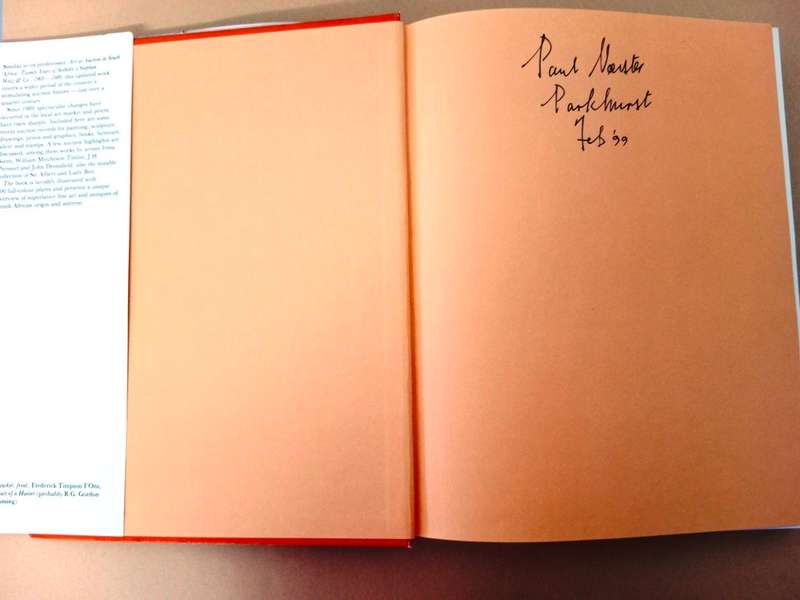 Similar to its predecessor, Art at Auction in South
Africa: Twenty Years of Sotheby's Stephan
Welz & Co. 1969 – 1989, this updated work
covers a wider period in the country's
stimulating auction history — just over a
quarter century.
Since 1989, spectacular changes have
occurred in the local art market and prices
have risen sharply. Included here are some
recent auction records for painting, sculpture,
drawings, prints and graphics, books, furniture,
silver and stamps. A few auction highlights are
discussed, among them works by artists Irma
Stern, William Mitcheson Timlin, J.H.
Pierneef and John Dronsfield, also the notable
collection of Sir Albert and Lady Beit.
The book is lavishly illustrated with
full-colour plates and presents a unique
overview of superlative fine art and antiques of
South African origin and interest.
front: Frederick Timpson I'Ons,
of a Hunter (probably R.G. Gordon
Paul
Parkhurst
Feb '99